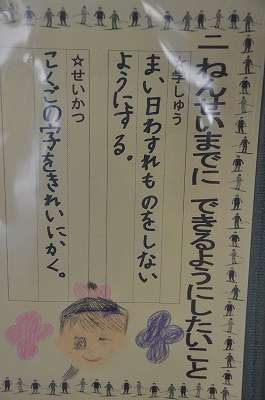 二ねんせいまでに できるようにしたいこと
☆学しゅう
まい日わすれものをしない
ようにする。
☆せいかつ
こくごの字をきれいに、かく。